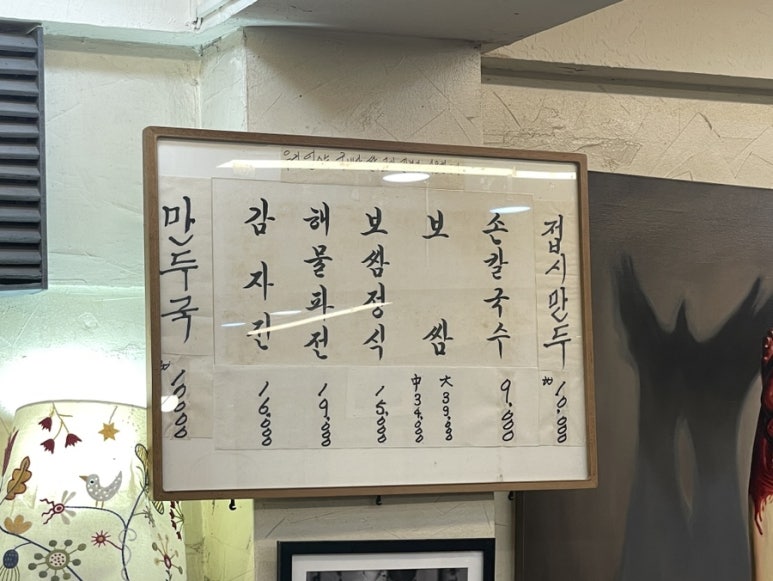 접시만두
10,000
손칼국수
9,000
보쌈
大 39,000
中 34,000
보쌈정식
15,000
해물파전
19,000
감자전
16,000
만두국
10,000